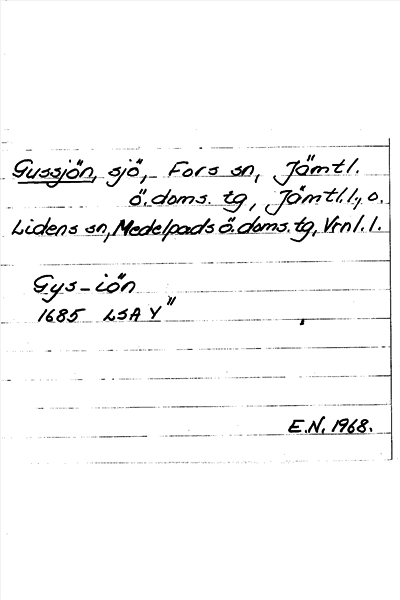 Gussjön, sjö, Fors sn, Jämtl.
ö. doms. tg, Jämtl.l., o.
Lidens sn, Medelpads ö. doms. tg, Vrnl.l.
Gys-iön
1685 LSA Y"
E.N. 1968.